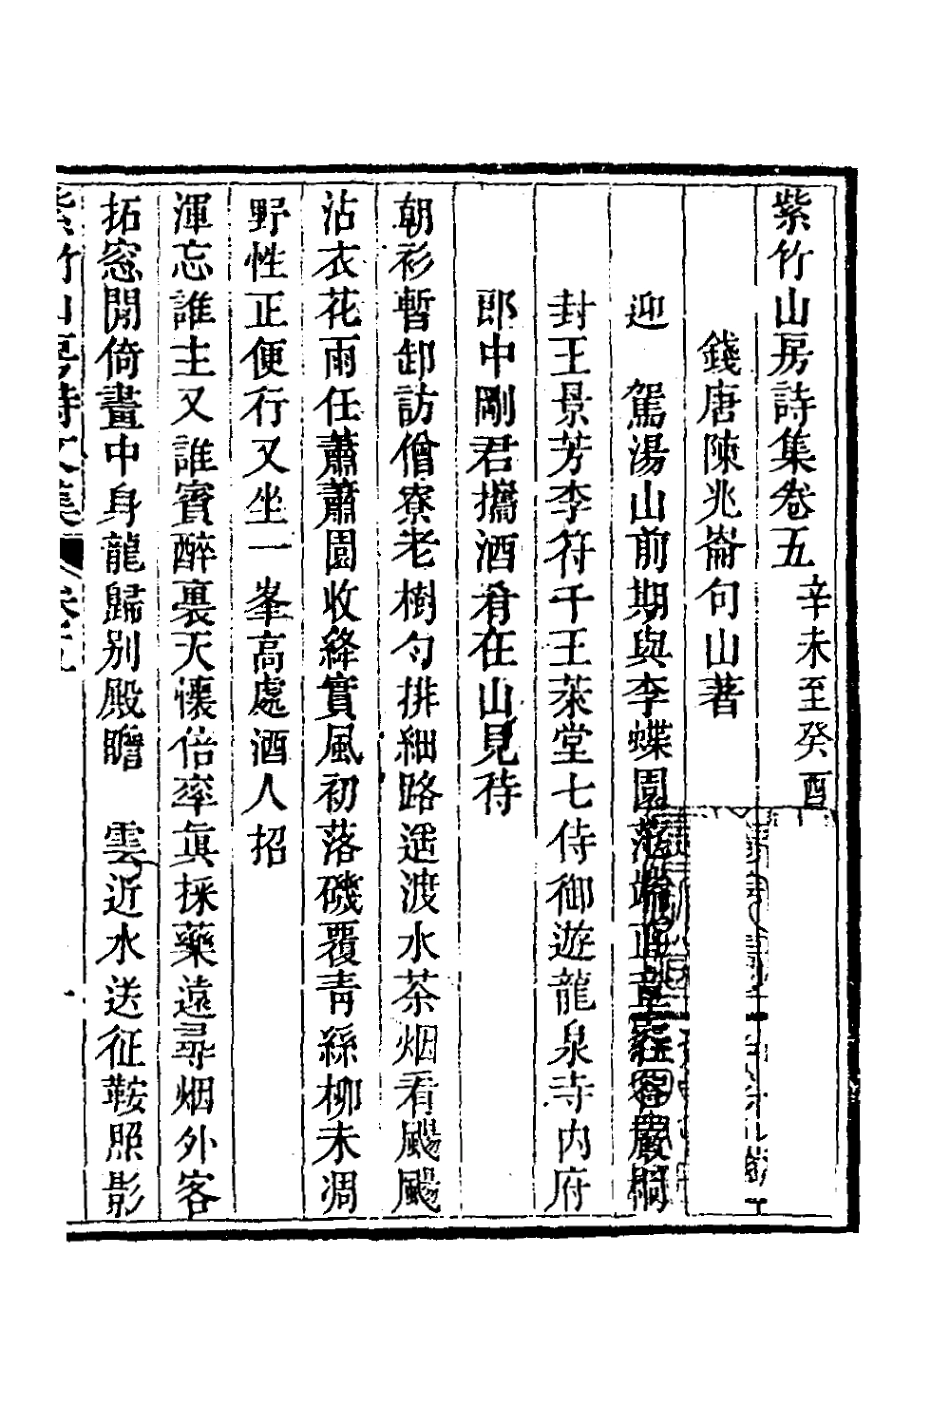 紫竹山房詩集卷五 辛未至癸酉
錢唐陳兆崙句山著
迎 駕湯山前期與李蝶園范端嚴桐
封王景芳李符千王萊堂七侍御遊龍泉寺内府
郎中剛君攜酒肴在山見待
朝衫暫卸訪僧寮老樹勻排細路遥渡水茶烟看颺颺
沾衣花雨任蕭蕭園收絳實風初落磯覆青絲柳未凋
野性正便行又坐一峯高處酒人招
渾忘誰主又誰賓醉裏天懷倍率眞採藥遠尋烟外客
拓窓閒倚畫中身龍歸别殿瞻 雲近水送征鞍照影